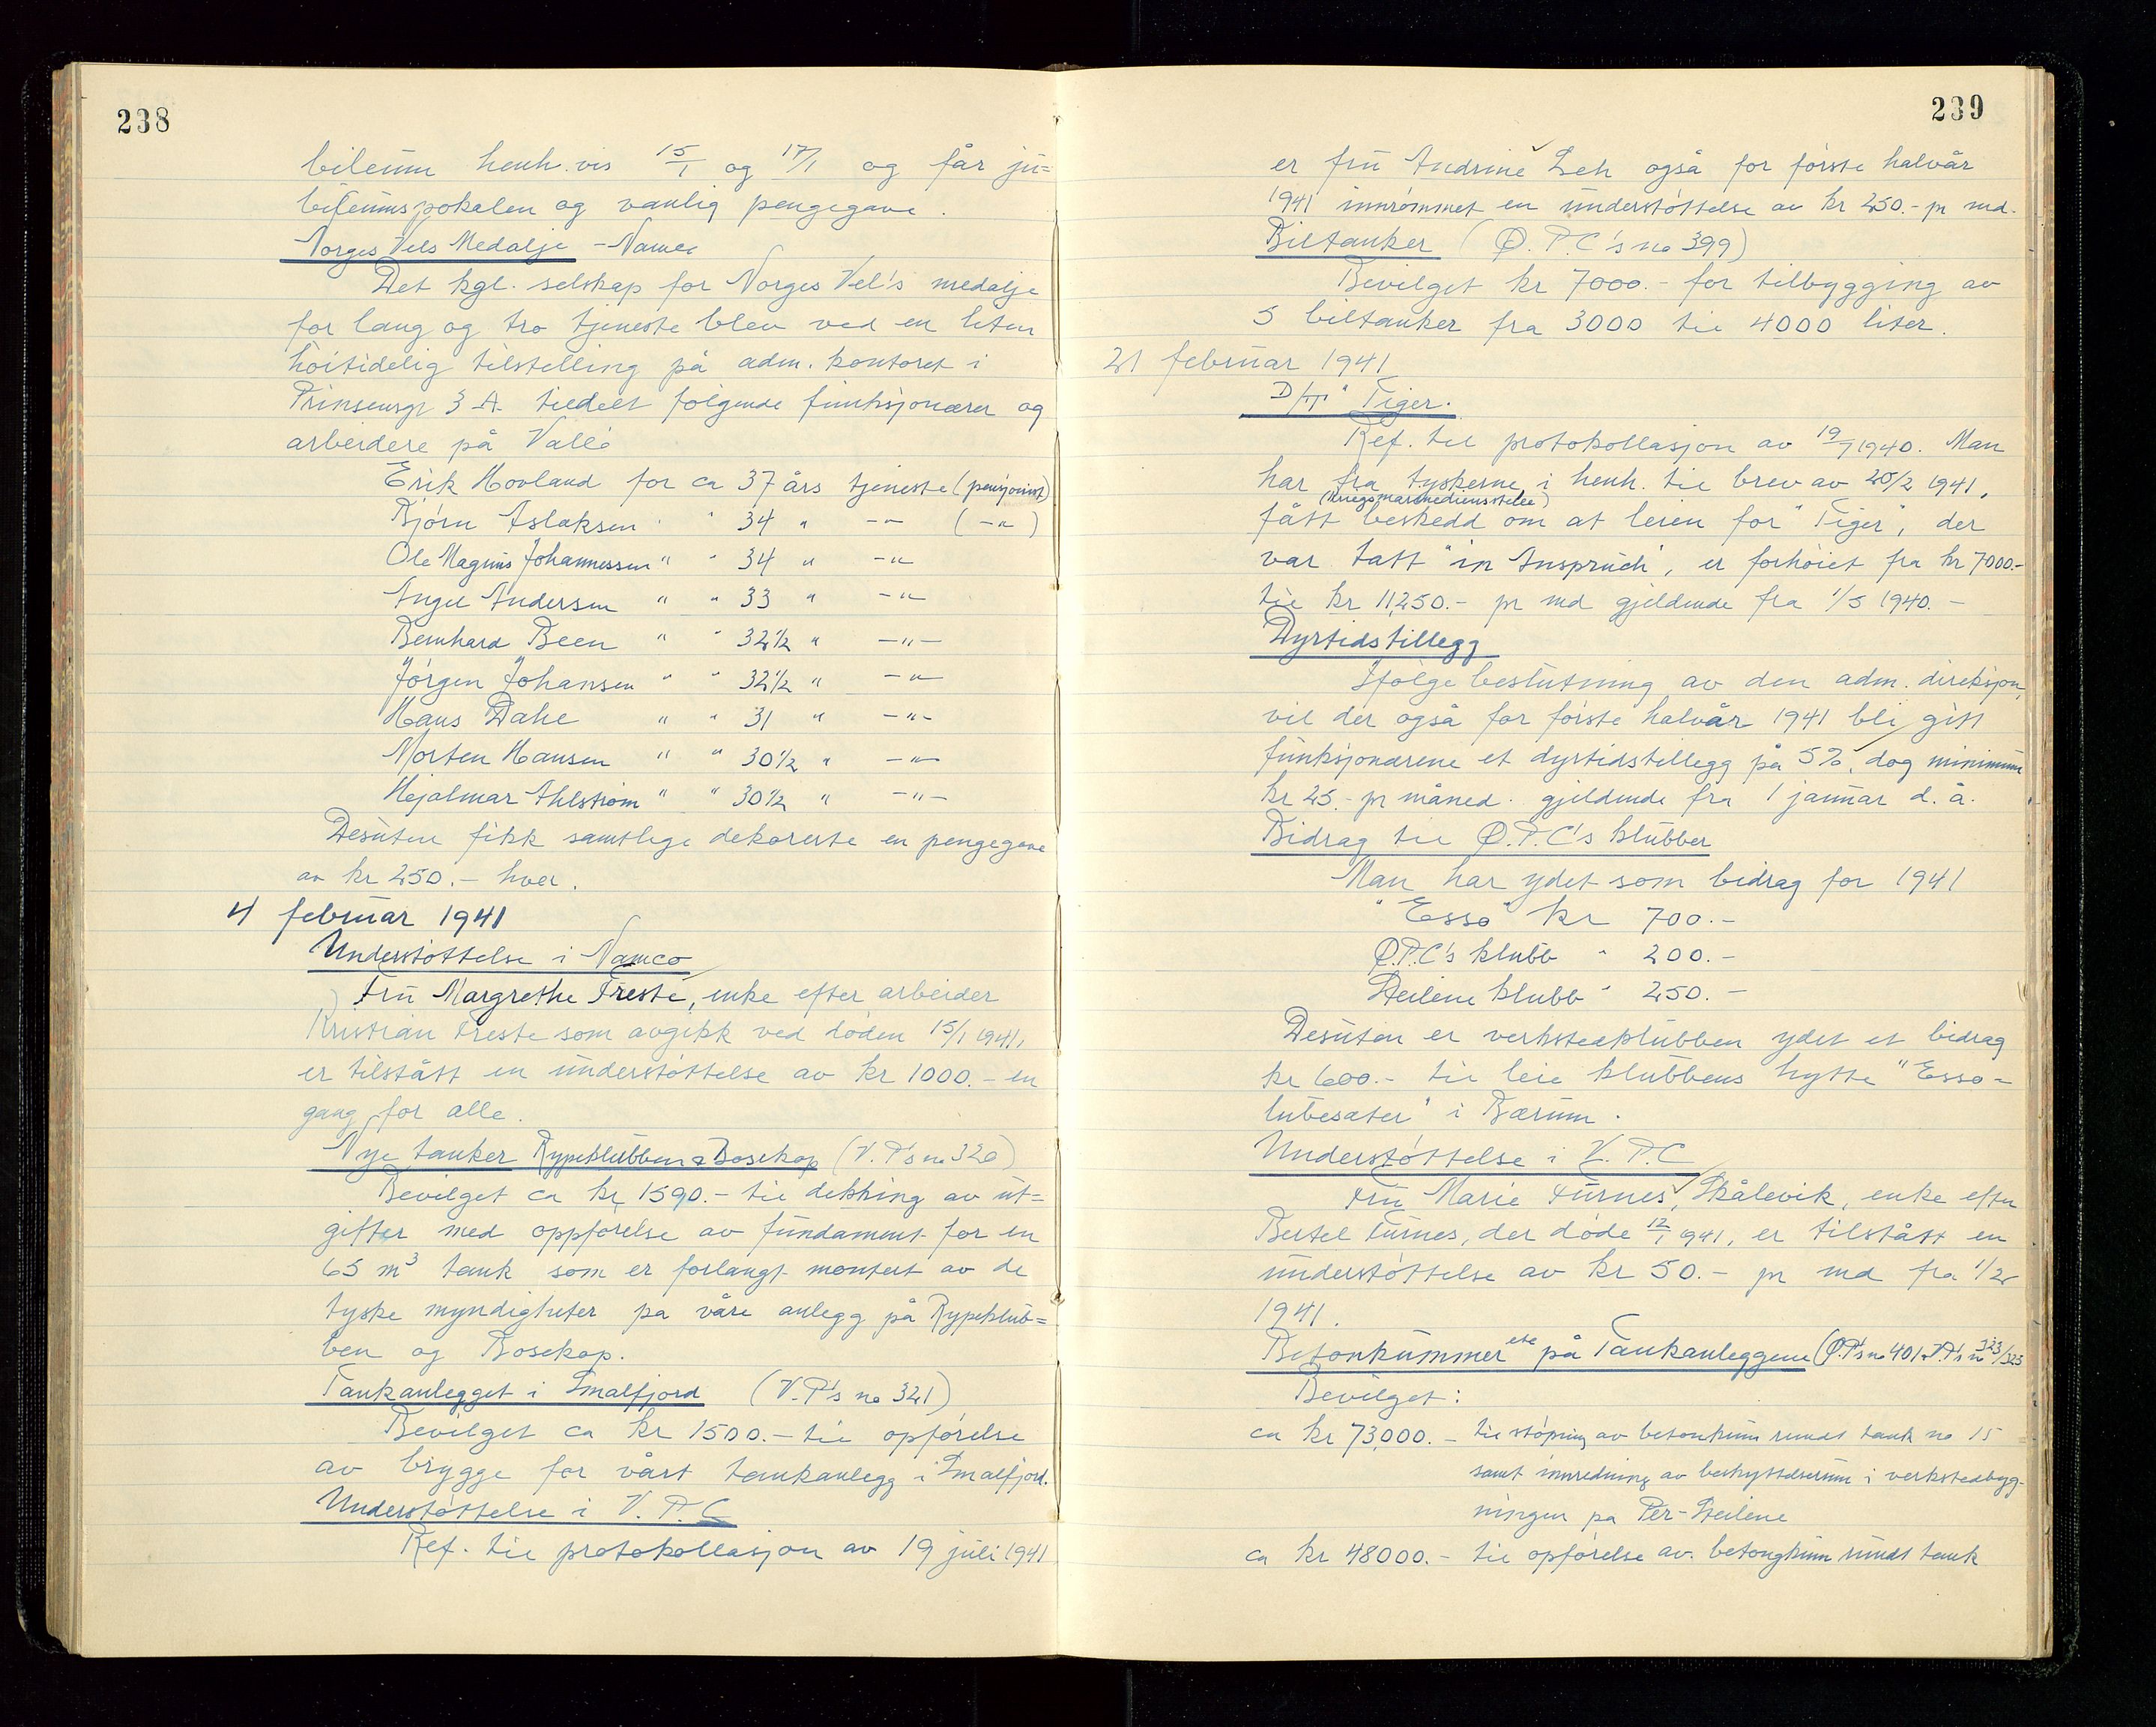 238
bileum henh.vis 15/1 og 17/1 og får ju=
bileumspokalen og vanlig pengegave.
Norges Vels Medalje - Namco
Det kgl. selskap for Norges Vel's medalje
for lang og tro tjeneste blev ved en liten
høitidelig tilstelling på adm. kontoret i
Prinsensgt 3 A tildelt følgende funksjonærer og
arbeidere på Vallø
Erik Hovland for ca 37 års tjeneste (pensjonist)
Bjørn Aslaksen " " 34 " -"- (-"-)
Ole Magnus Johannessen " " 34 " -"-
Angel Andersen " " 33 " -"-
Bernhard Been " " 32 1/2 " -"-
Jørgen Johansen " " 32 1/2 " -"-
Hans Dahl " " 31 " -"-
Morten Hansen " " 30 1/2 " -"-
Hejalmar Ahlstrøm " " 30 1/2 " -"-
Desuten fikk samtlige dekorerte en pengegave
av kr 250.- hver.
4 februar 1941
Understøttelse i Namco
Fru Margrethe Treste, enke efter arbeider
Kristian Treste som avgikk ved døden 15/1 1941,
er tilstått en understøttelse av kr 1000.- en
gang for alle.
Nye tanker Rypeklubben & Bosekop (V.P's no 320)
Bevilget ca kr 1590.- til dekking av ut=
gifter med oppførelse av fundament for en
65 m³ tank som er forlangt montert av de
tyske myndigheter pa våre anlegg på Rypeklub=
ben og Bosekop.
Tankanlegget i Smalfjord (V.P's no 321)
Bevilget ca kr 1500.- til opførelse
av brygge for vårt tankanlegg i Smalfjord.
Understøttelse i V.P.C
Ref. til protokollasjon av 19 juli 1941
239
er fru Andrine Leh også for første halvår
1941 innrømmet en understøttelse av kr 250.- pr md.
Biltanker (Ø.P.C's no 399)
Bevilget kr 7000.- for tilbygging av
5 biltanker fra 3000 til 4000 liter.
21 februar 1941
D/T "Tiger.
Ref. til protokollasjon av 19/7 1940. Man
har fra tyskerne, i henh. til brev av 20/2 1941,
(Kriegsmarinediensstelle)
fått beskedd om at leien for "Tiger", der
var tatt "in Anspruch", er forhøiet fra kr 7000.-
til kr 11,250.- pr md gjeldende fra 1/5 1940.-
Dyrtidstillegg
Ifølge beslutning av den adm. direksjon,
vil der også for første halvår 1941 bli gitt
funksjonærene et dyrtidstillegg på 5%, dog minimum
kr 25.- pr måned. gjeldende fra 1 januar d.å.
Bidrag til Ø.P.C's klubber
Man har ydet som bidrag for 1941
"Esso" kr 700.-
Ø.P.C's klubb " 200.-
Steilene klubb " 250.-
Desuten er verkstedklubben ydet et bidrag
kr 600.- til leie klubbens hytte "Esso=
lubesæter" i Bærum.
Understøttelse i V.P.C
Fru Marie Furnes, Skålevik, enke efter
Bertel Furnes, der døde 12/1 1941, er tilstått en
understøttelse av kr 50.- pr md fra 1/2
1941.
Betonkummer etc på Tankanleggene (Ø.P's no 401 V.P's no 323/325
Bevilget:
ca kr 73,000.- til støping av betonkum rundt tank no 15
samt innredning av beskyttelsesrum i verkstedbygg-
ningen pa Per-Steilene
ca kr 48000.- til opførelse av betongkum rundt tank